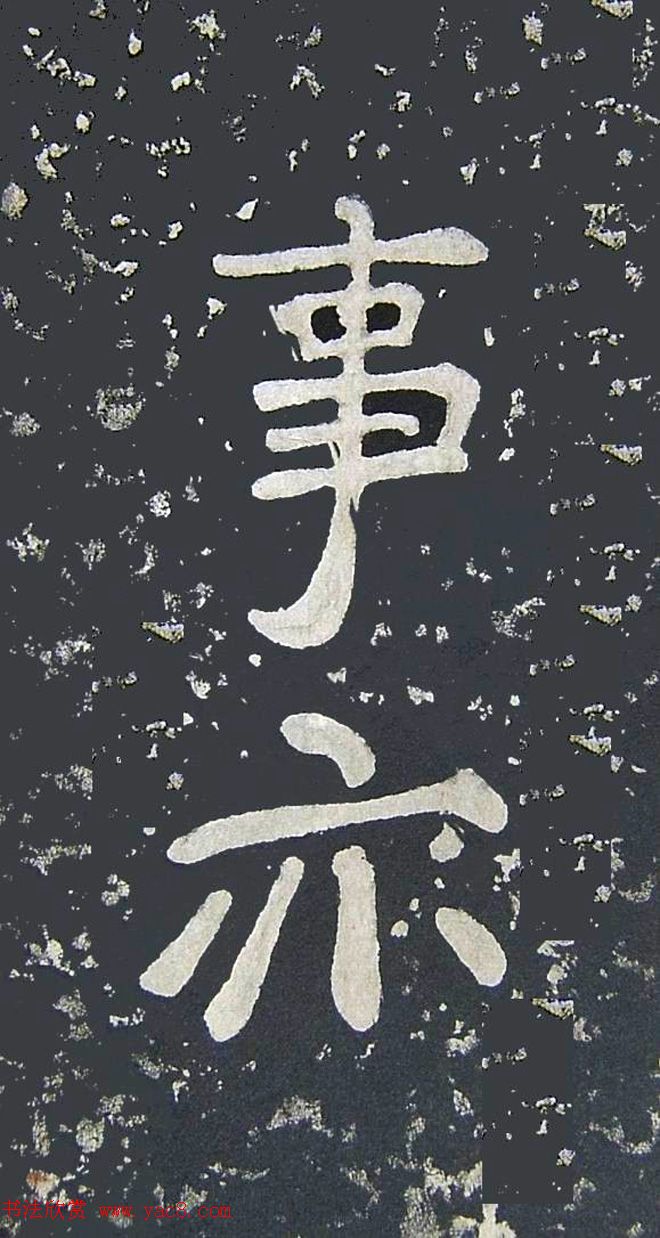 事
亦
书法欣赏 www.yac8.com